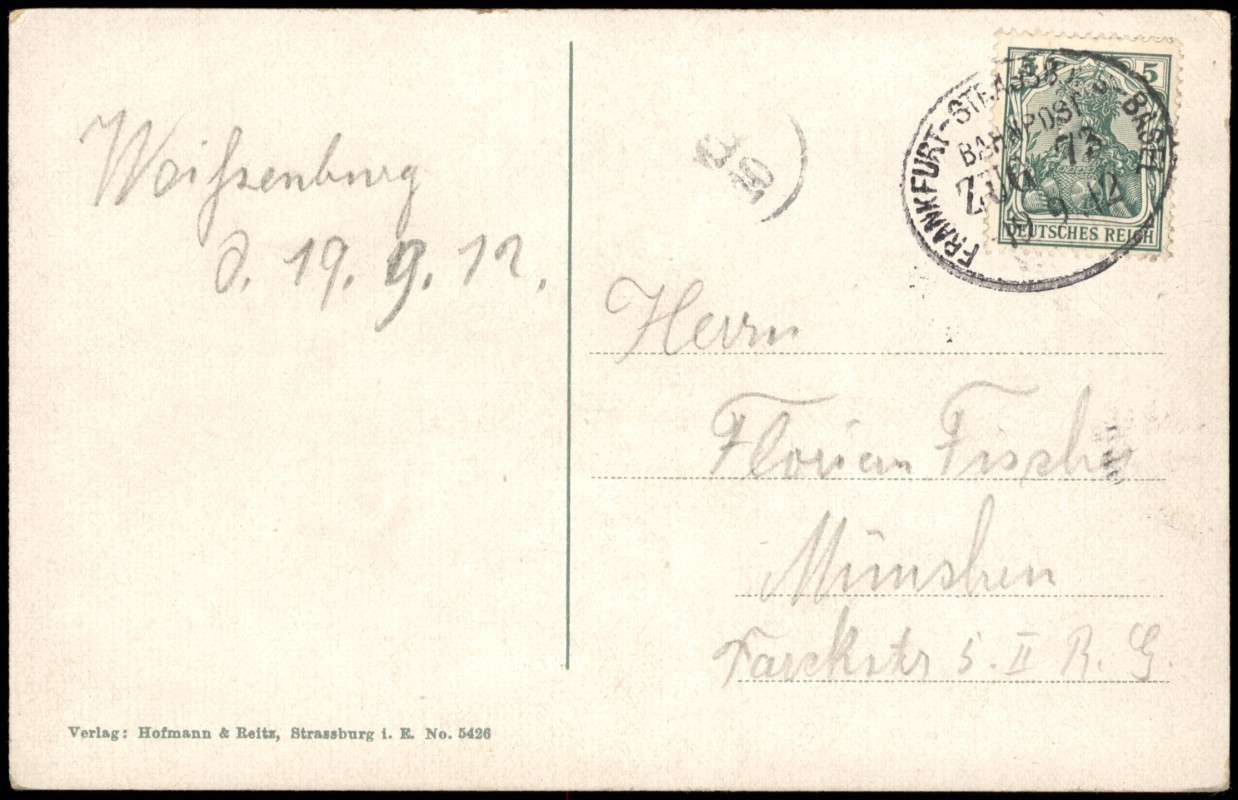 Weißenburg
d. 19. 9. 12.
5 5
DEUTSCHES REICH
FRANKFURT-STRASSBURG-BASEL
BAHNPOST
ZUG 73
19 9 12
Herrn
Florian Fischer
München
5. II R. G.
Verlag: Hofmann & Reitz, Strassburg i. E. No. 5426